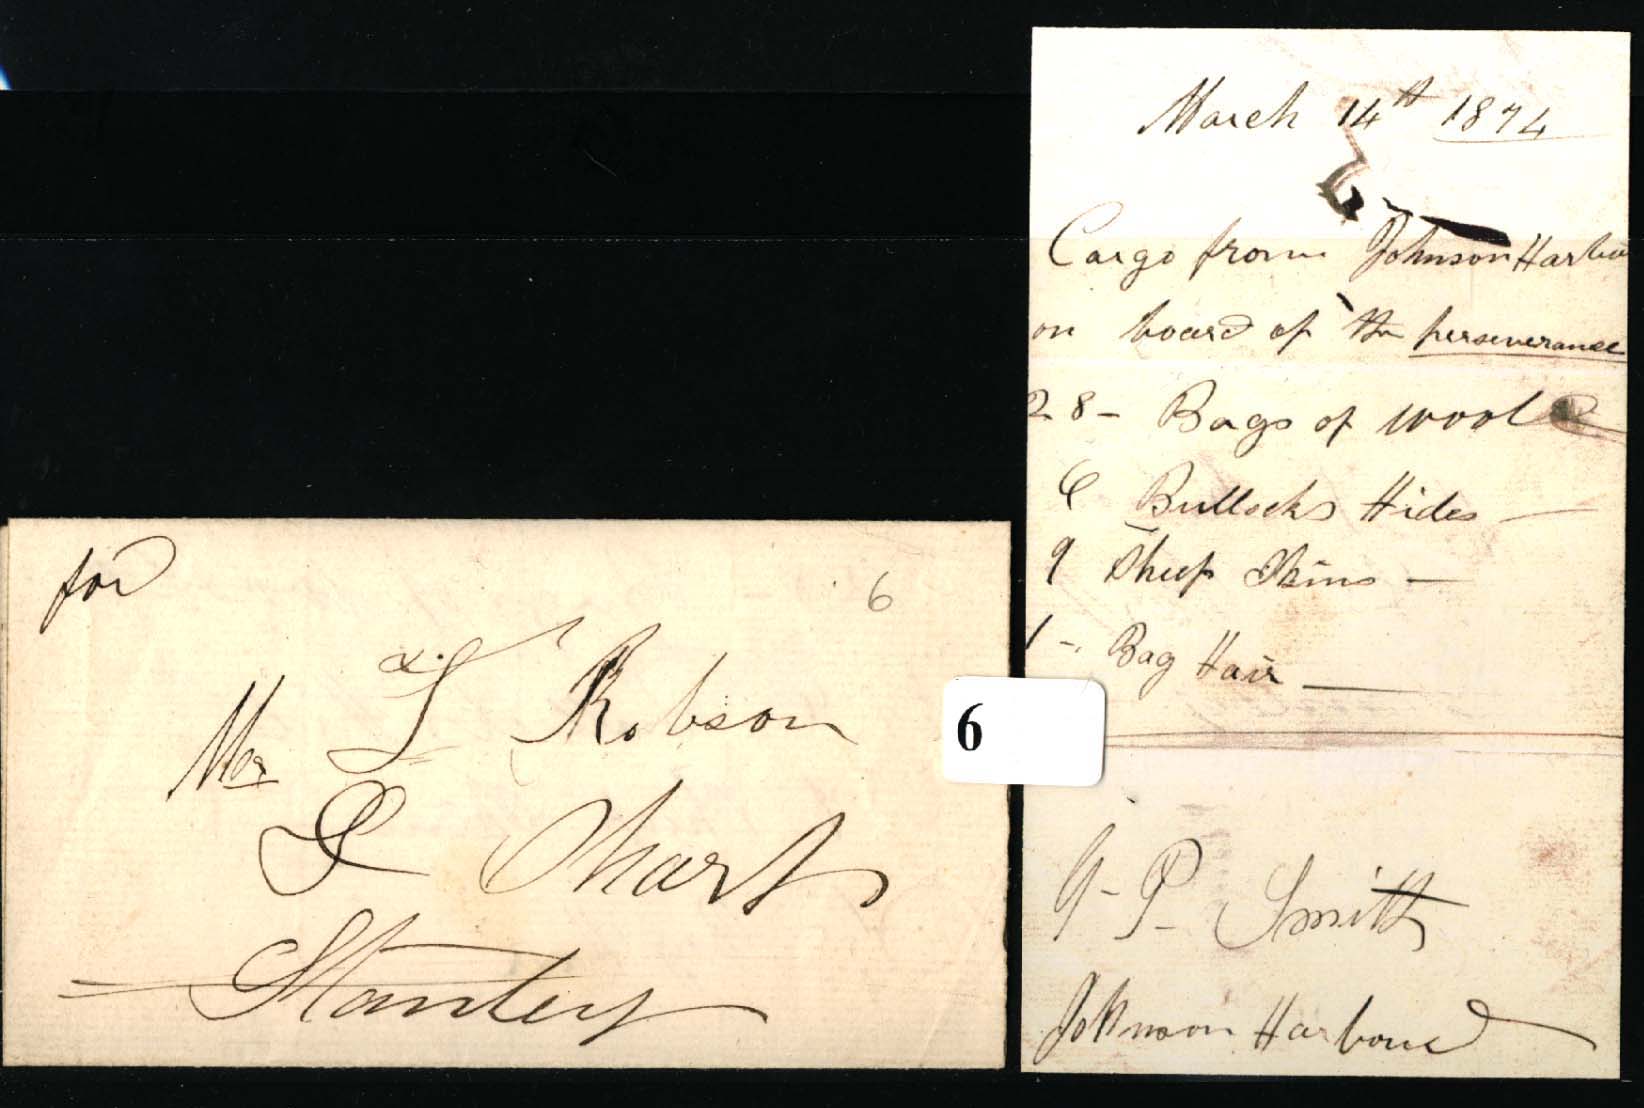 for
6
Mr L Robson
& Charls
Stanley
6
March 14th 1874
Cargo from Johnson Harbour
on board of the perseverance
28 - Bags of wool
6 Bullocks Hides —
9 Sheep Skins —
1 - Bag Hair —
G - P - Smith
Johnson Harbour